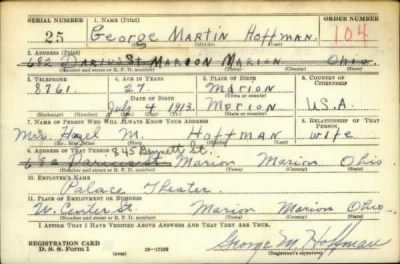 SERIAL NUMBER 1. NAME (Print) ORDER NUMBER
25 George Martin Hoffman 104
2. ADDRESS (Print)
682 Darius St. Marion Marion Ohio
(Number and street or R. F. D. number) (Town) (County) (State)
3. TELEPHONE 4. AGE IN YEARS 5. PLACE OF BIRTH 6. COUNTRY OF CITIZENSHIP
8761 27 Marion
DATE OF BIRTH (Town)
July 4 1913 Marion U.S.A.
(Mo.) (Day) (Yr.) (State or county)
7. NAME OF PERSON WHO WILL ALWAYS KNOW YOUR ADDRESS 8. RELATIONSHIP OF THAT PERSON
Mrs. Hazel M. Hoffman wife
(Mr., Mrs., Miss) (First) (Middle) (Last)
9. ADDRESS OF THAT PERSON 845 Bennett St.
682 Darius St Marion Marion Ohio
(Number and street or R. F. D. number) (Town) (County) (State)
10. EMPLOYER'S NAME
Palace Theater
11. PLACE OF EMPLOYMENT OR BUSINESS
W. Center St. Marion Marion Ohio
(Number and street or R. F. D. number) (Town) (County) (State)
I AFFIRM THAT I HAVE VERIFIED ABOVE ANSWERS AND THAT THEY ARE TRUE.
REGISTRATION CARD
D. S. S. Form 1 (over) 16-17105 George M. Hoffman
(Registrant's signature)